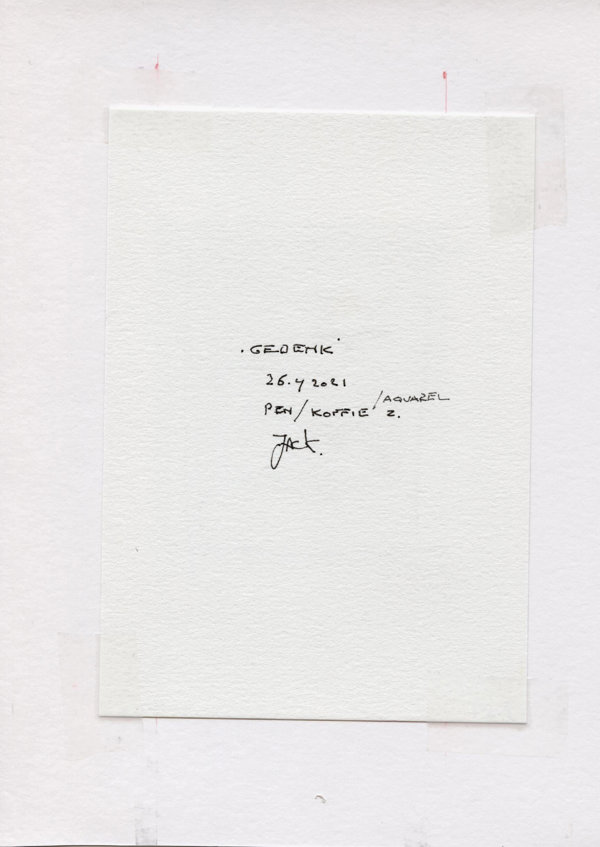 'GEDENK'
26.4 2021
PEN/KOFFIE/AQUAREL Z.
JACK.